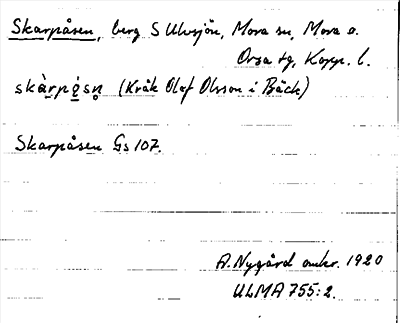 Skarpåsen, berg S Ulvsjön, Mora sn, Mora o.
Orsa tg, Kopp. l.
(Kråk Olof Olsson i Bäck)
Skarpåsen Gs 107.
A. Nygård omkr. 1920
ULMA 755:2.